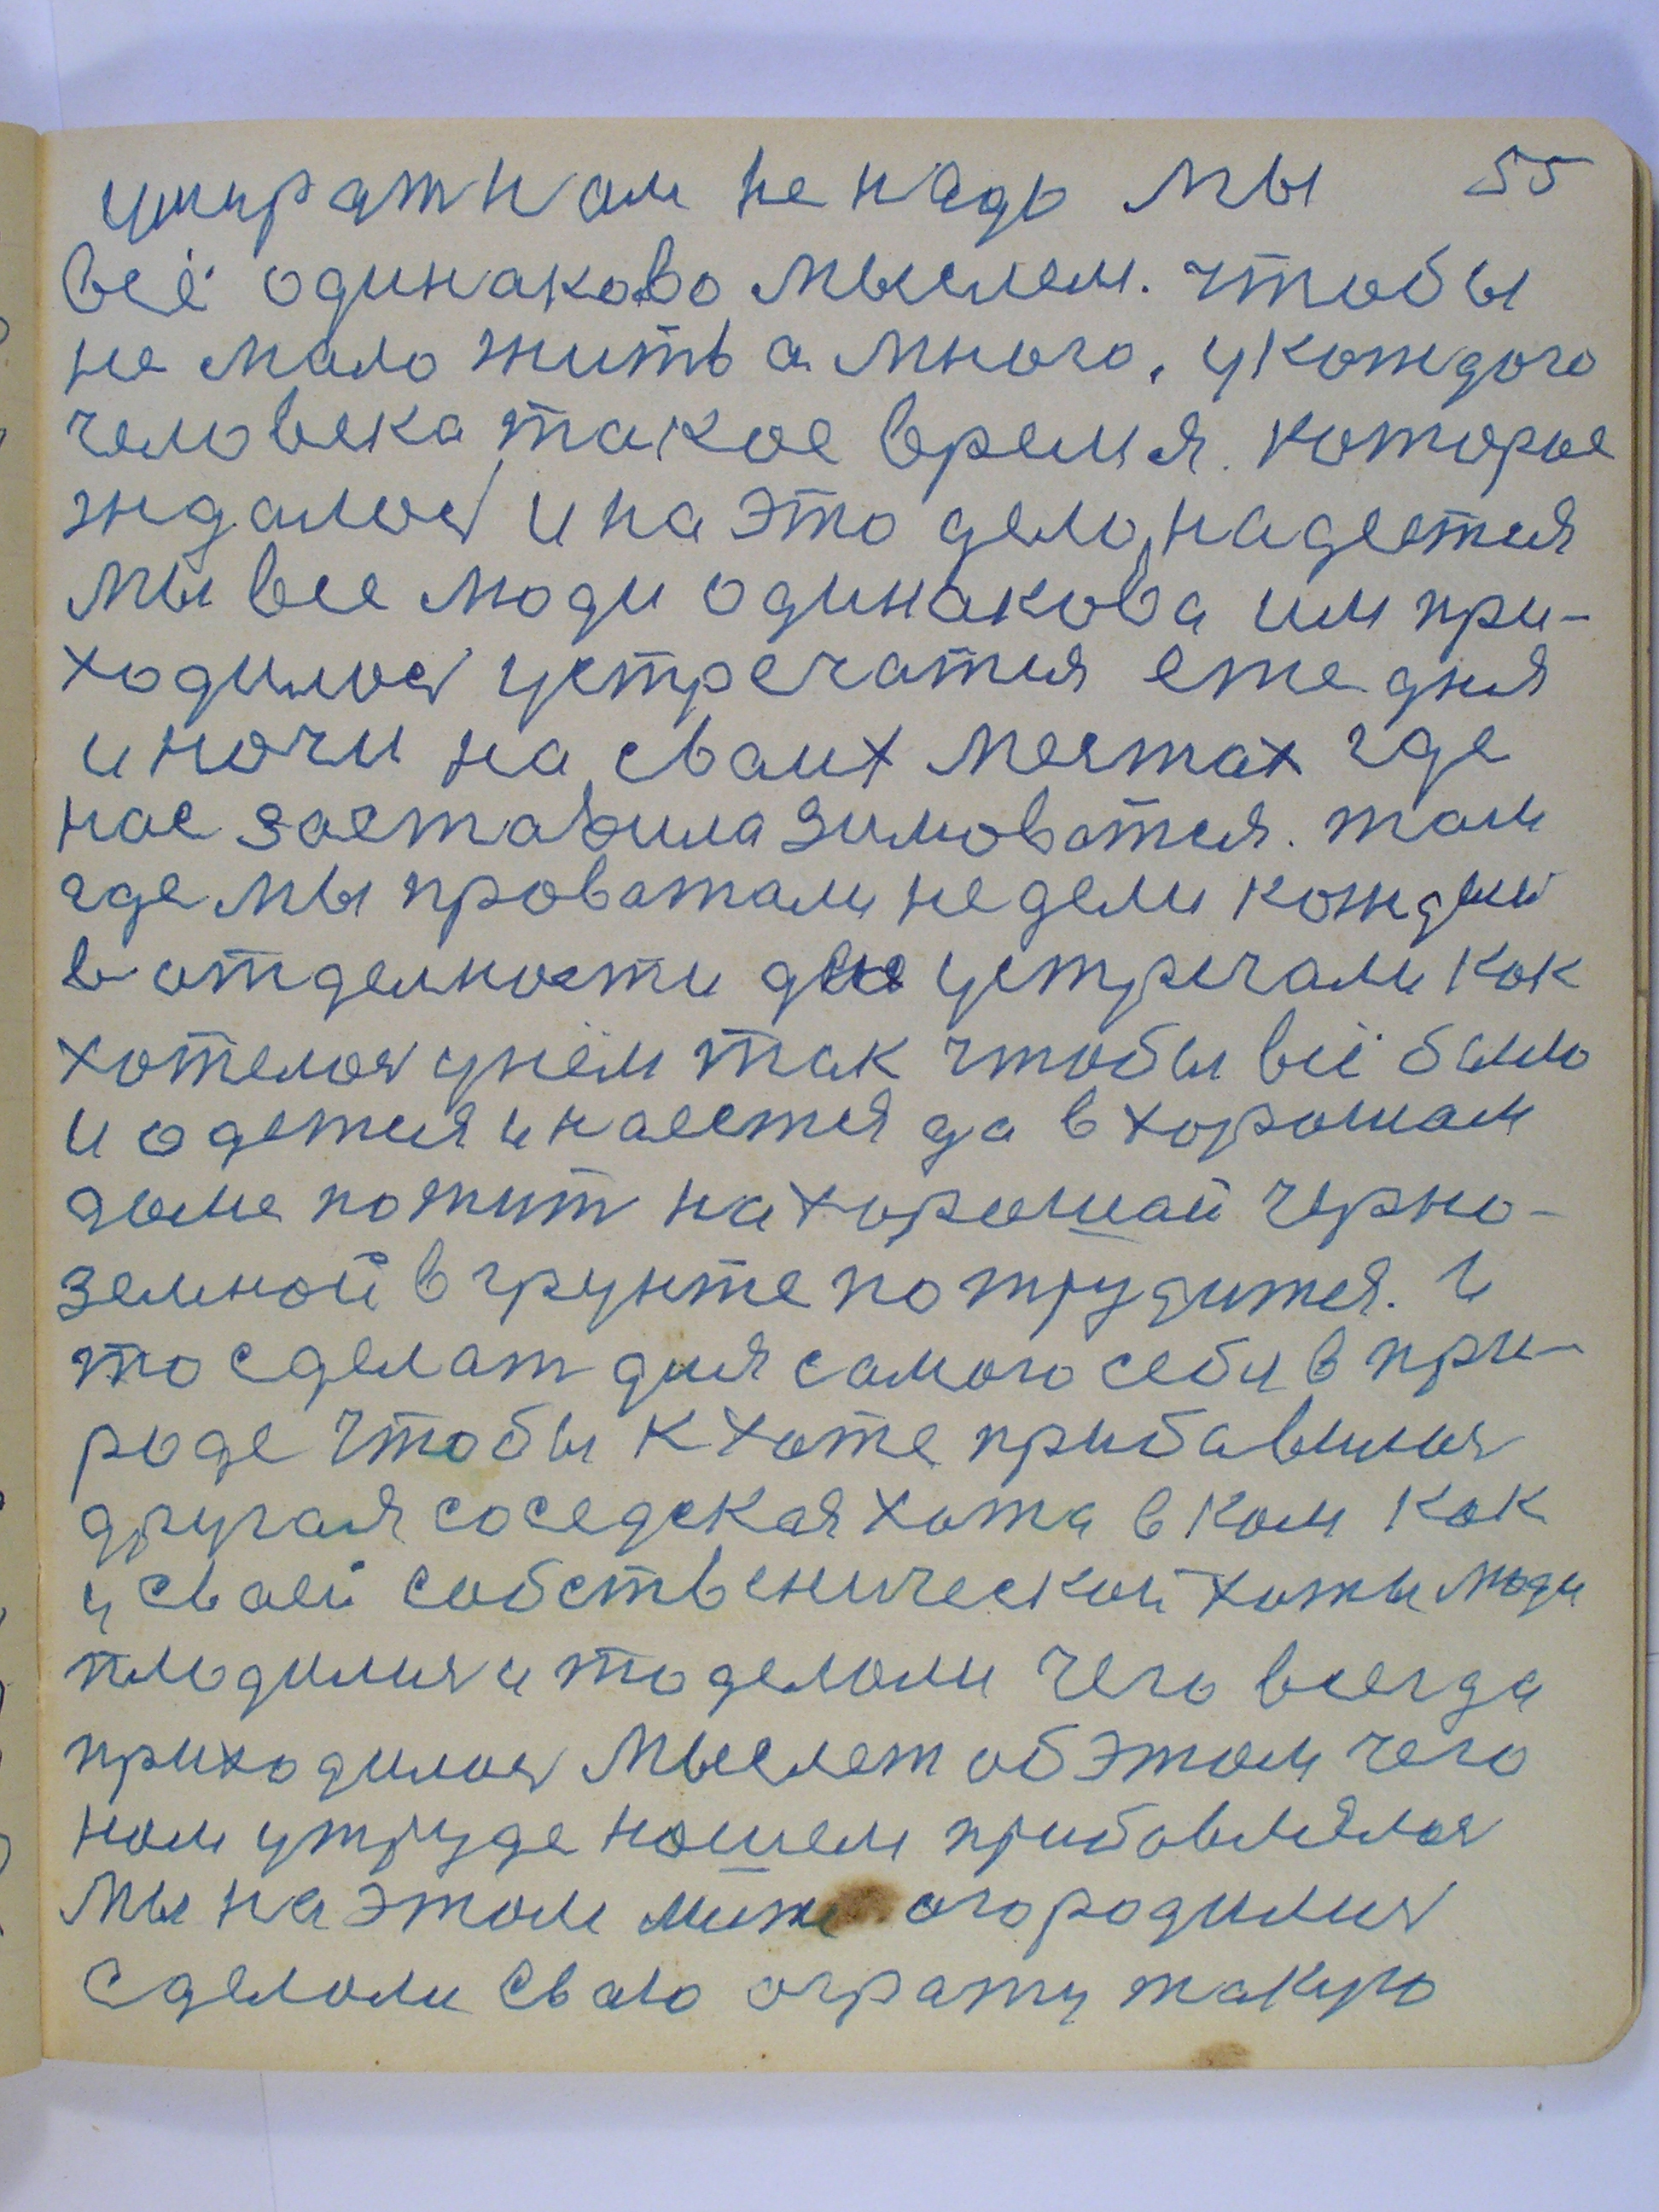 умират нам не надо мы 55
всё одинаково мыслем. чтобы
не мало жить а много. у каждого
человека такое время. которое
ждалося и на это дело, надеетия
мы все люди одинакова им при-
ходилося устречатися еже дня
и ночи на сваих местах где
нас заставила зимоватися. там
где мы проватали недели каждый
в отделности дне устречали как
хотелося унём так чтобы всё было
и одетися и наестися да в хорошам
доме пожит на хорошай черно-
земной в грунте потрудится. И
то сделат для самого себя в при-
роде чтобы к хате прибавилося
другая соседская хата в ком как
у сваей собственической хаты люди
плодилися и то делали чего всегда
приходилося мыслет об этом чего
нам у труде нашем прибавлялося
мы на этом огородилися
сделали сваю аграту такую